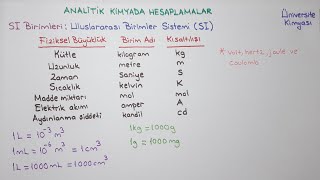 ANALİTİK KİMYADA HESAPLAMALAR
Üniversite
Kimyası
SI Birimleri: Uluslararası Birimler Sistemi (SI)
Fiziksel Büyüklük Birim Adı Kısaltılışı
Kütle kilogram kg
Uzunluk metre m
Zaman Saniye S
Sıcaklık kelvin K
Madde miktarı mol mol
Elektrik akımı amper A
Aydınlanma şiddeti kandil cd
volt, hertz, joule ve
coulomb
1L = 10⁻³ m³
1mL = 10⁻⁶ m³ = 1cm³
1L = 1000mL = 1000cm³
1kg = 1000g
1g = 1000mg